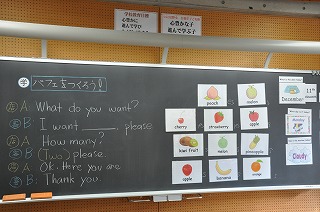 学校教育目標
心豊かに
進んで学ぶ子
心豊かな子
進んで学ぶ子
学 パフェをつくろう!
A: What do you want?
B: I want ____, please
A: How many?
B: (Two) please.
A: Ok. Here you are.
B: Thank you.
peach
melon
cherry
strawberry
apple
kiwi fruit
pineapple
apple
banana
orange
December
11th
Cloudy